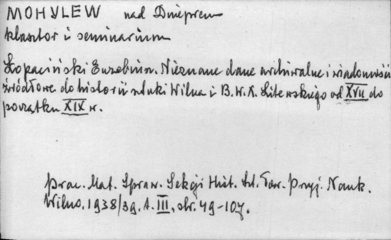 MOHYLEW nad Dnieprem
klasztor i seminarium
Łopaciński Euzebiusz. Nieznane dane archiwalne i wiadomości
źródłowe do historii sztuki Wilna i B. W. X. Litewskiego od XVII do
początku XIX w.
Prac. Mat. Spraw. Sekcji Hist. Szt. Tow. Przyj. Nauk.
Wilno, 1938/39. t. III, str. 49-107.